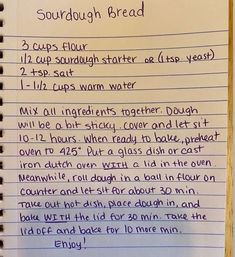 Sourdough Bread
3 cups flour
1/2 cup sourdough starter or (1 tsp yeast)
2 tsp. salt
1-1/2 cups warm water
Mix all ingredients together. Dough
will be a bit sticky. cover and let sit
10-12 hours. When ready to bake, preheat
oven to 425° Put a glass dish or cast
iron dutch oven WITH a lid in the oven.
Meanwhile, roll dough in a ball in flour on
counter and let sit for about 30 min.
Take out hot dish, place dough in, and
bake WITH the lid for 30 min. Take the
lid off and bake for 10 more min.
Enjoy!